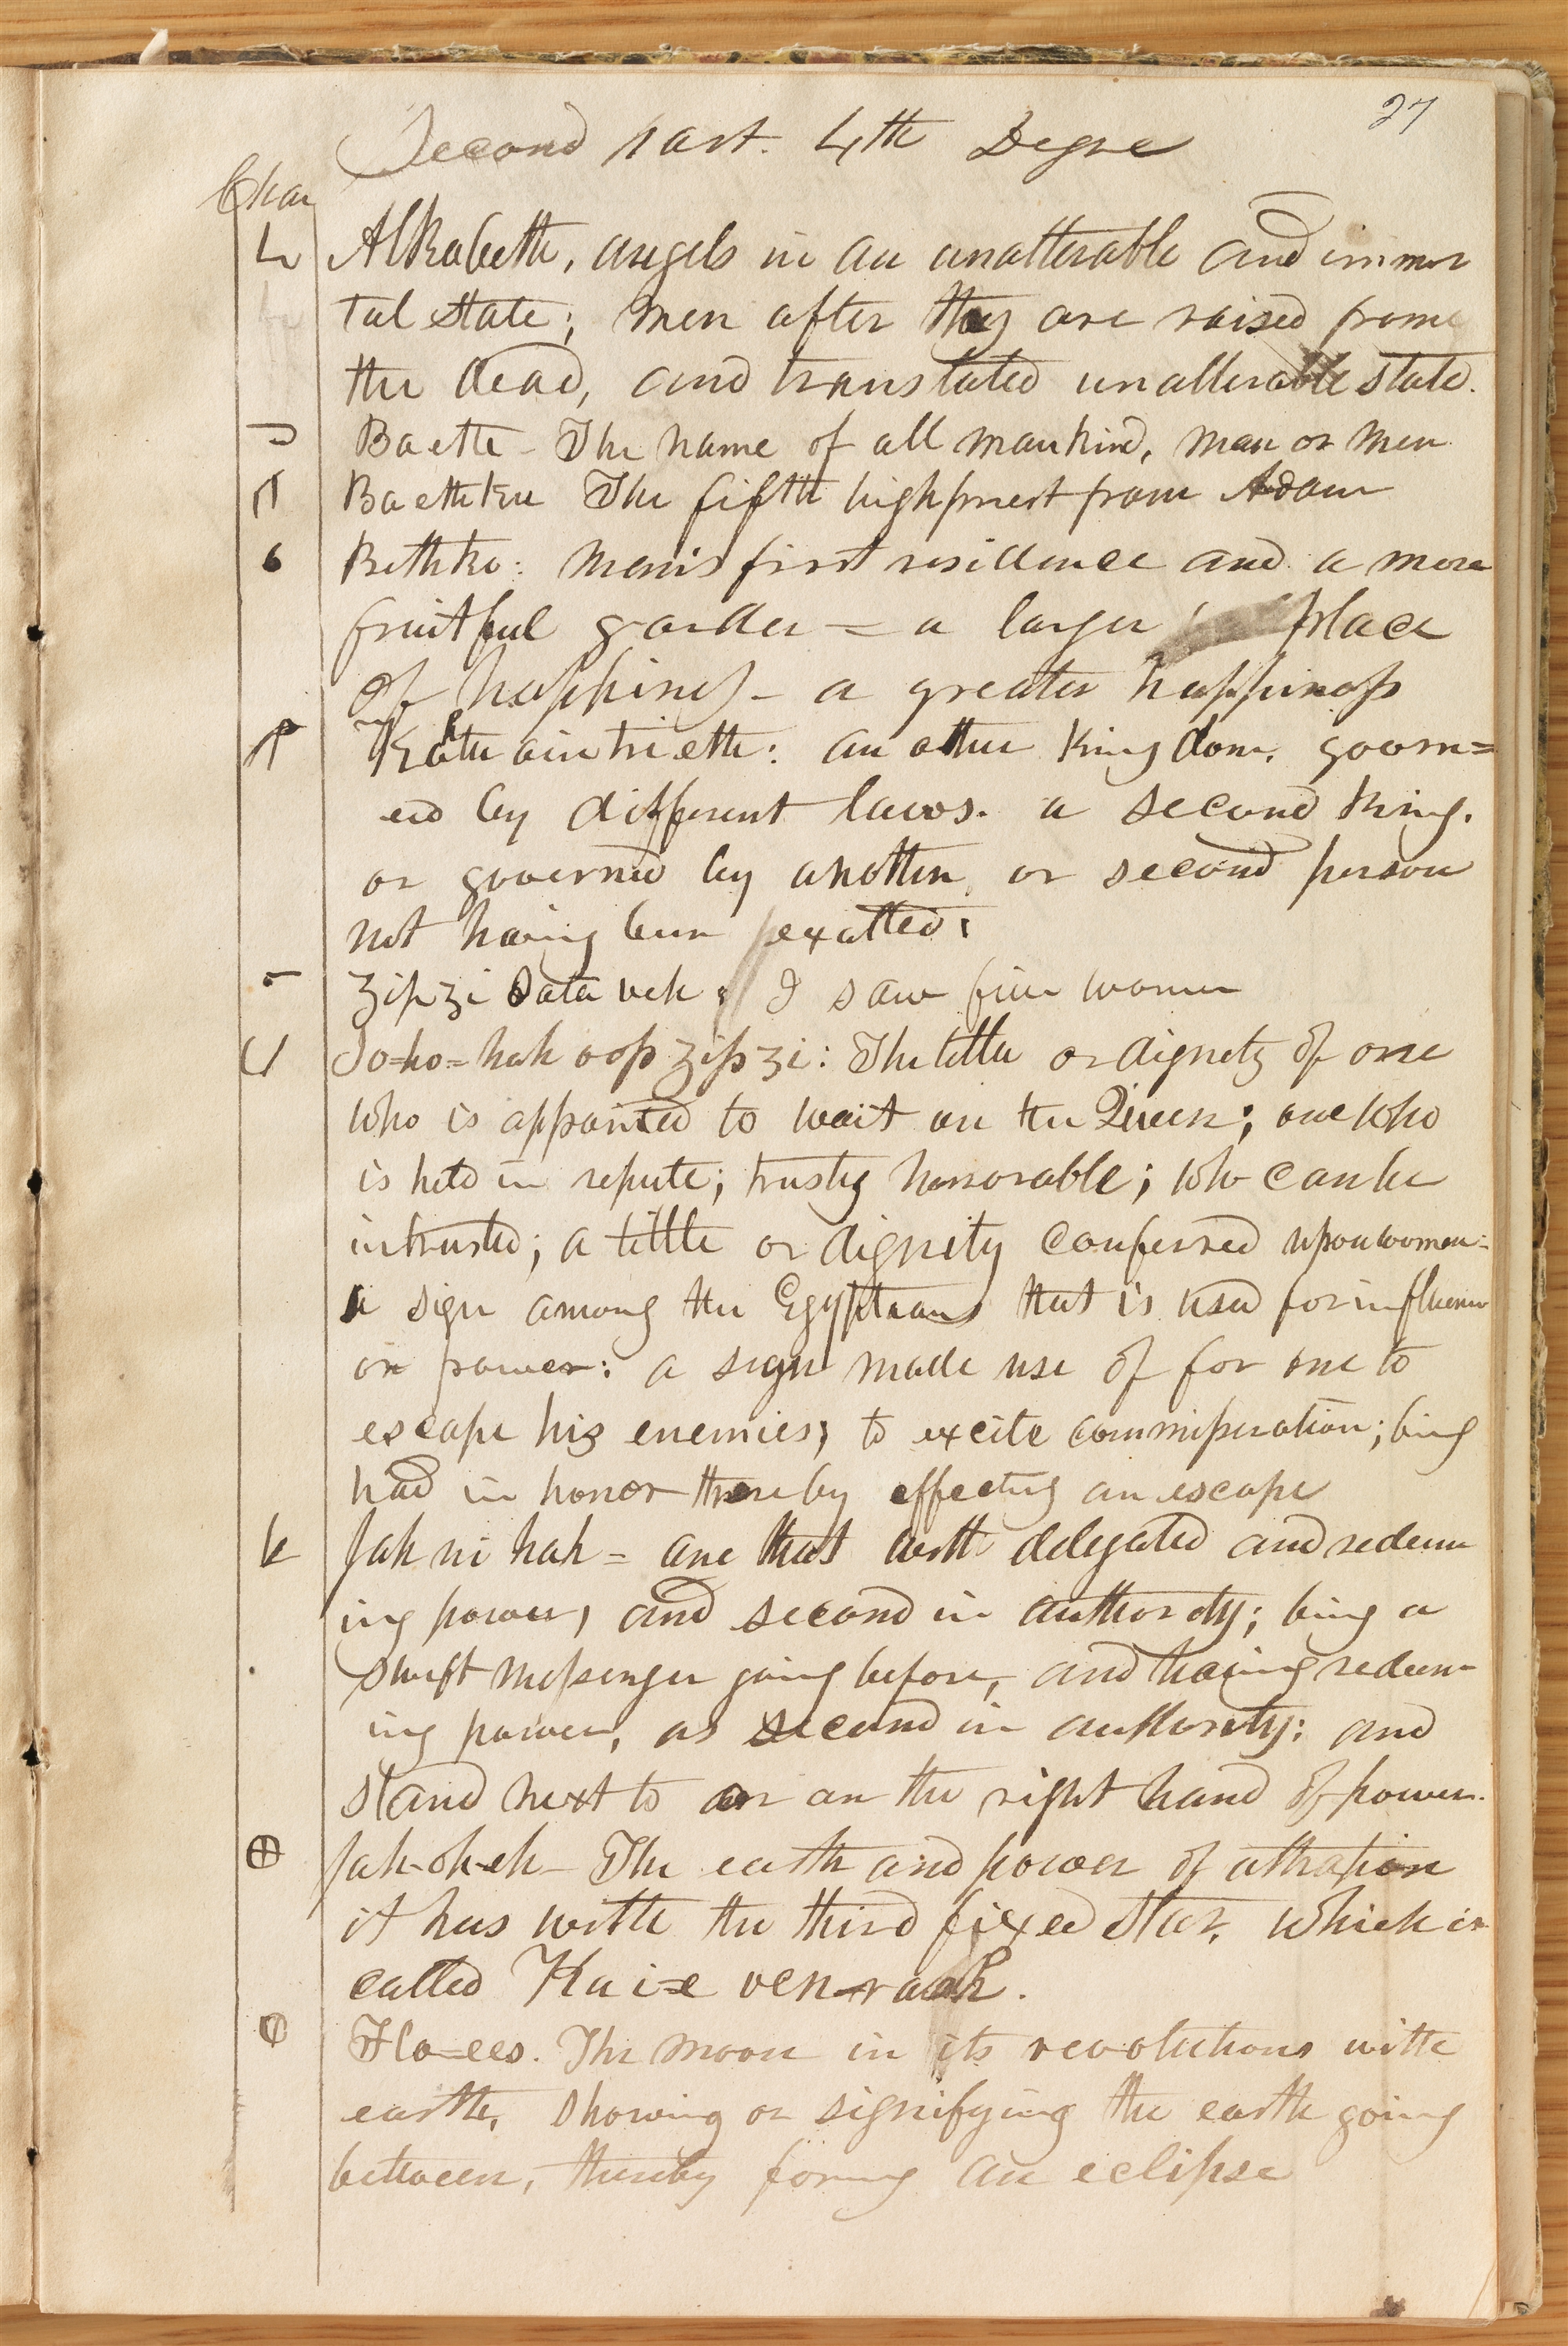 27
Second part. 4th Degree
Char
Alkabeth, angels in an unalterable and immor
tal state; men after they are raised from
the dead, and translated unallerable state.
Baeth - The name of all mankind, man or men
Baethku The fifth highpriest from Adam
Bethko: man's first residence and a more
fruitful garden = a larger place
of happiness - a greater happiness
Kahtuaintrieth: an other kingdom, govern=
ed by different laws. a second King.
or governed by another, or second person
not having been exalted:
Zip zi Iota veh: I saw five women
Io=ho=hah oop zip zi: The tittle or dignety of one
who is appointed to wait on the Queen; one who
is held in repute; trusty honorable; who can be
intrusted; a tittle or dignity conferred upon women:
a sign among the Egyptians that is used for influence
or power: a sign made use of for one to
escape his enemies; to excite commisseration; being
had in honor thereby effecting an escape
Jah ni hah = one that with delegated and redeem
ing power, and second in authority; being a
swift messenger going before, and having redeem
ing power, as second in authority: and
stand next to or on the right hand of power.
Jah-oh-eh - The earth and power of attraction
it has with the third fixed star, which is
called Kai-e ven-rash.
Flo=ees. The moon in its revolutions with
earth, showing or signifying the earth going
between, thereby forming an eclipse